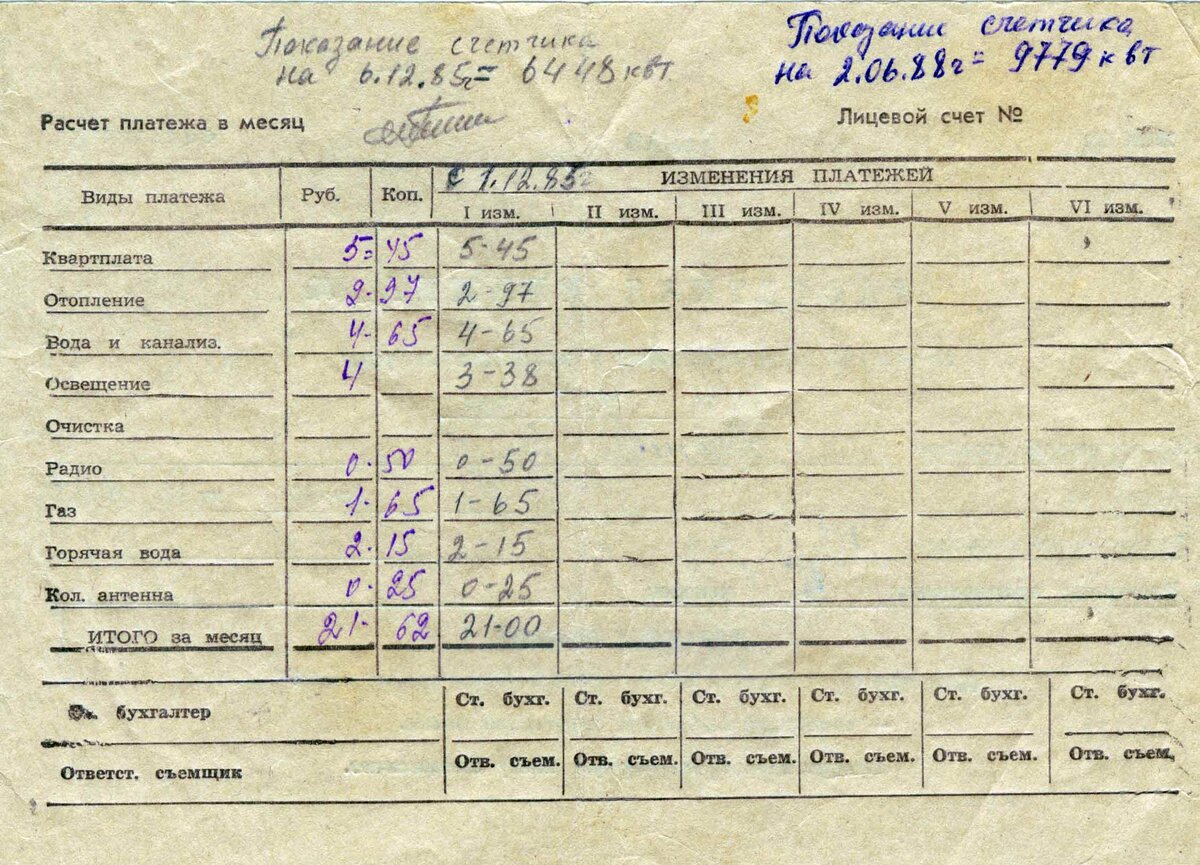 Показание счетчика
на 6.12.85г = 6448 квт
Показание счетчика
на 2.06.88г = 9779 квт
Расчет платежа в месяц
Лицевой счет №
Виды платежа Руб. Коп. с 1.12.85г ИЗМЕНЕНИЯ ПЛАТЕЖЕЙ
I изм. II изм. III изм. IV изм. V изм. VI изм.
Квартплата 5= 45 5-45
Отопление 2- 97 2-97
Вода и канализ. 4- 65 4-65
Освещение 4 3-38
Очистка
Радио 0- 50 0-50
Газ 1- 65 1-65
Горячая вода 2- 15 2-15
Кол. антенна 0- 25 0-25
ИТОГО за месяц 21- 62 21-00
бухгалтер Ст. бухг. Ст. бухг. Ст. бухг. Ст. бухг. Ст. бухг. Ст. бухг.
Ответст. съемщик Отв. съем. Отв. съем. Отв. съем. Отв. съем. Отв. съем. Отв. съем.